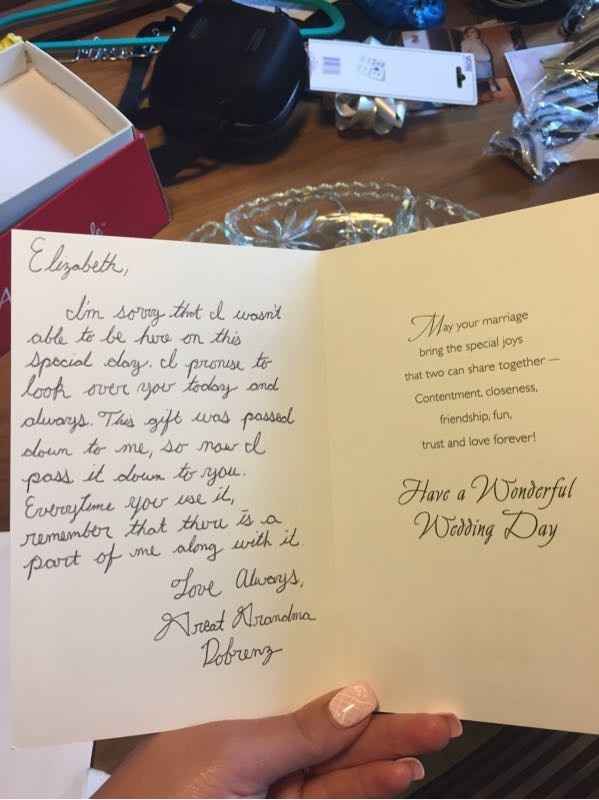 Elizabeth,
I'm sorry that I wasn't
able to be here on this
special day. I promise to
look over you today and
always. This gift was passed
down to me, so now I
pass it down to you.
Everytime you use it,
remember that there is a
part of me along with it.
Love Always,
Great Grandma
Dobrenz
May your marriage
bring the special joys
that two can share together —
Contentment, closeness,
friendship, fun,
trust and love forever!
Have a Wonderful
Wedding Day